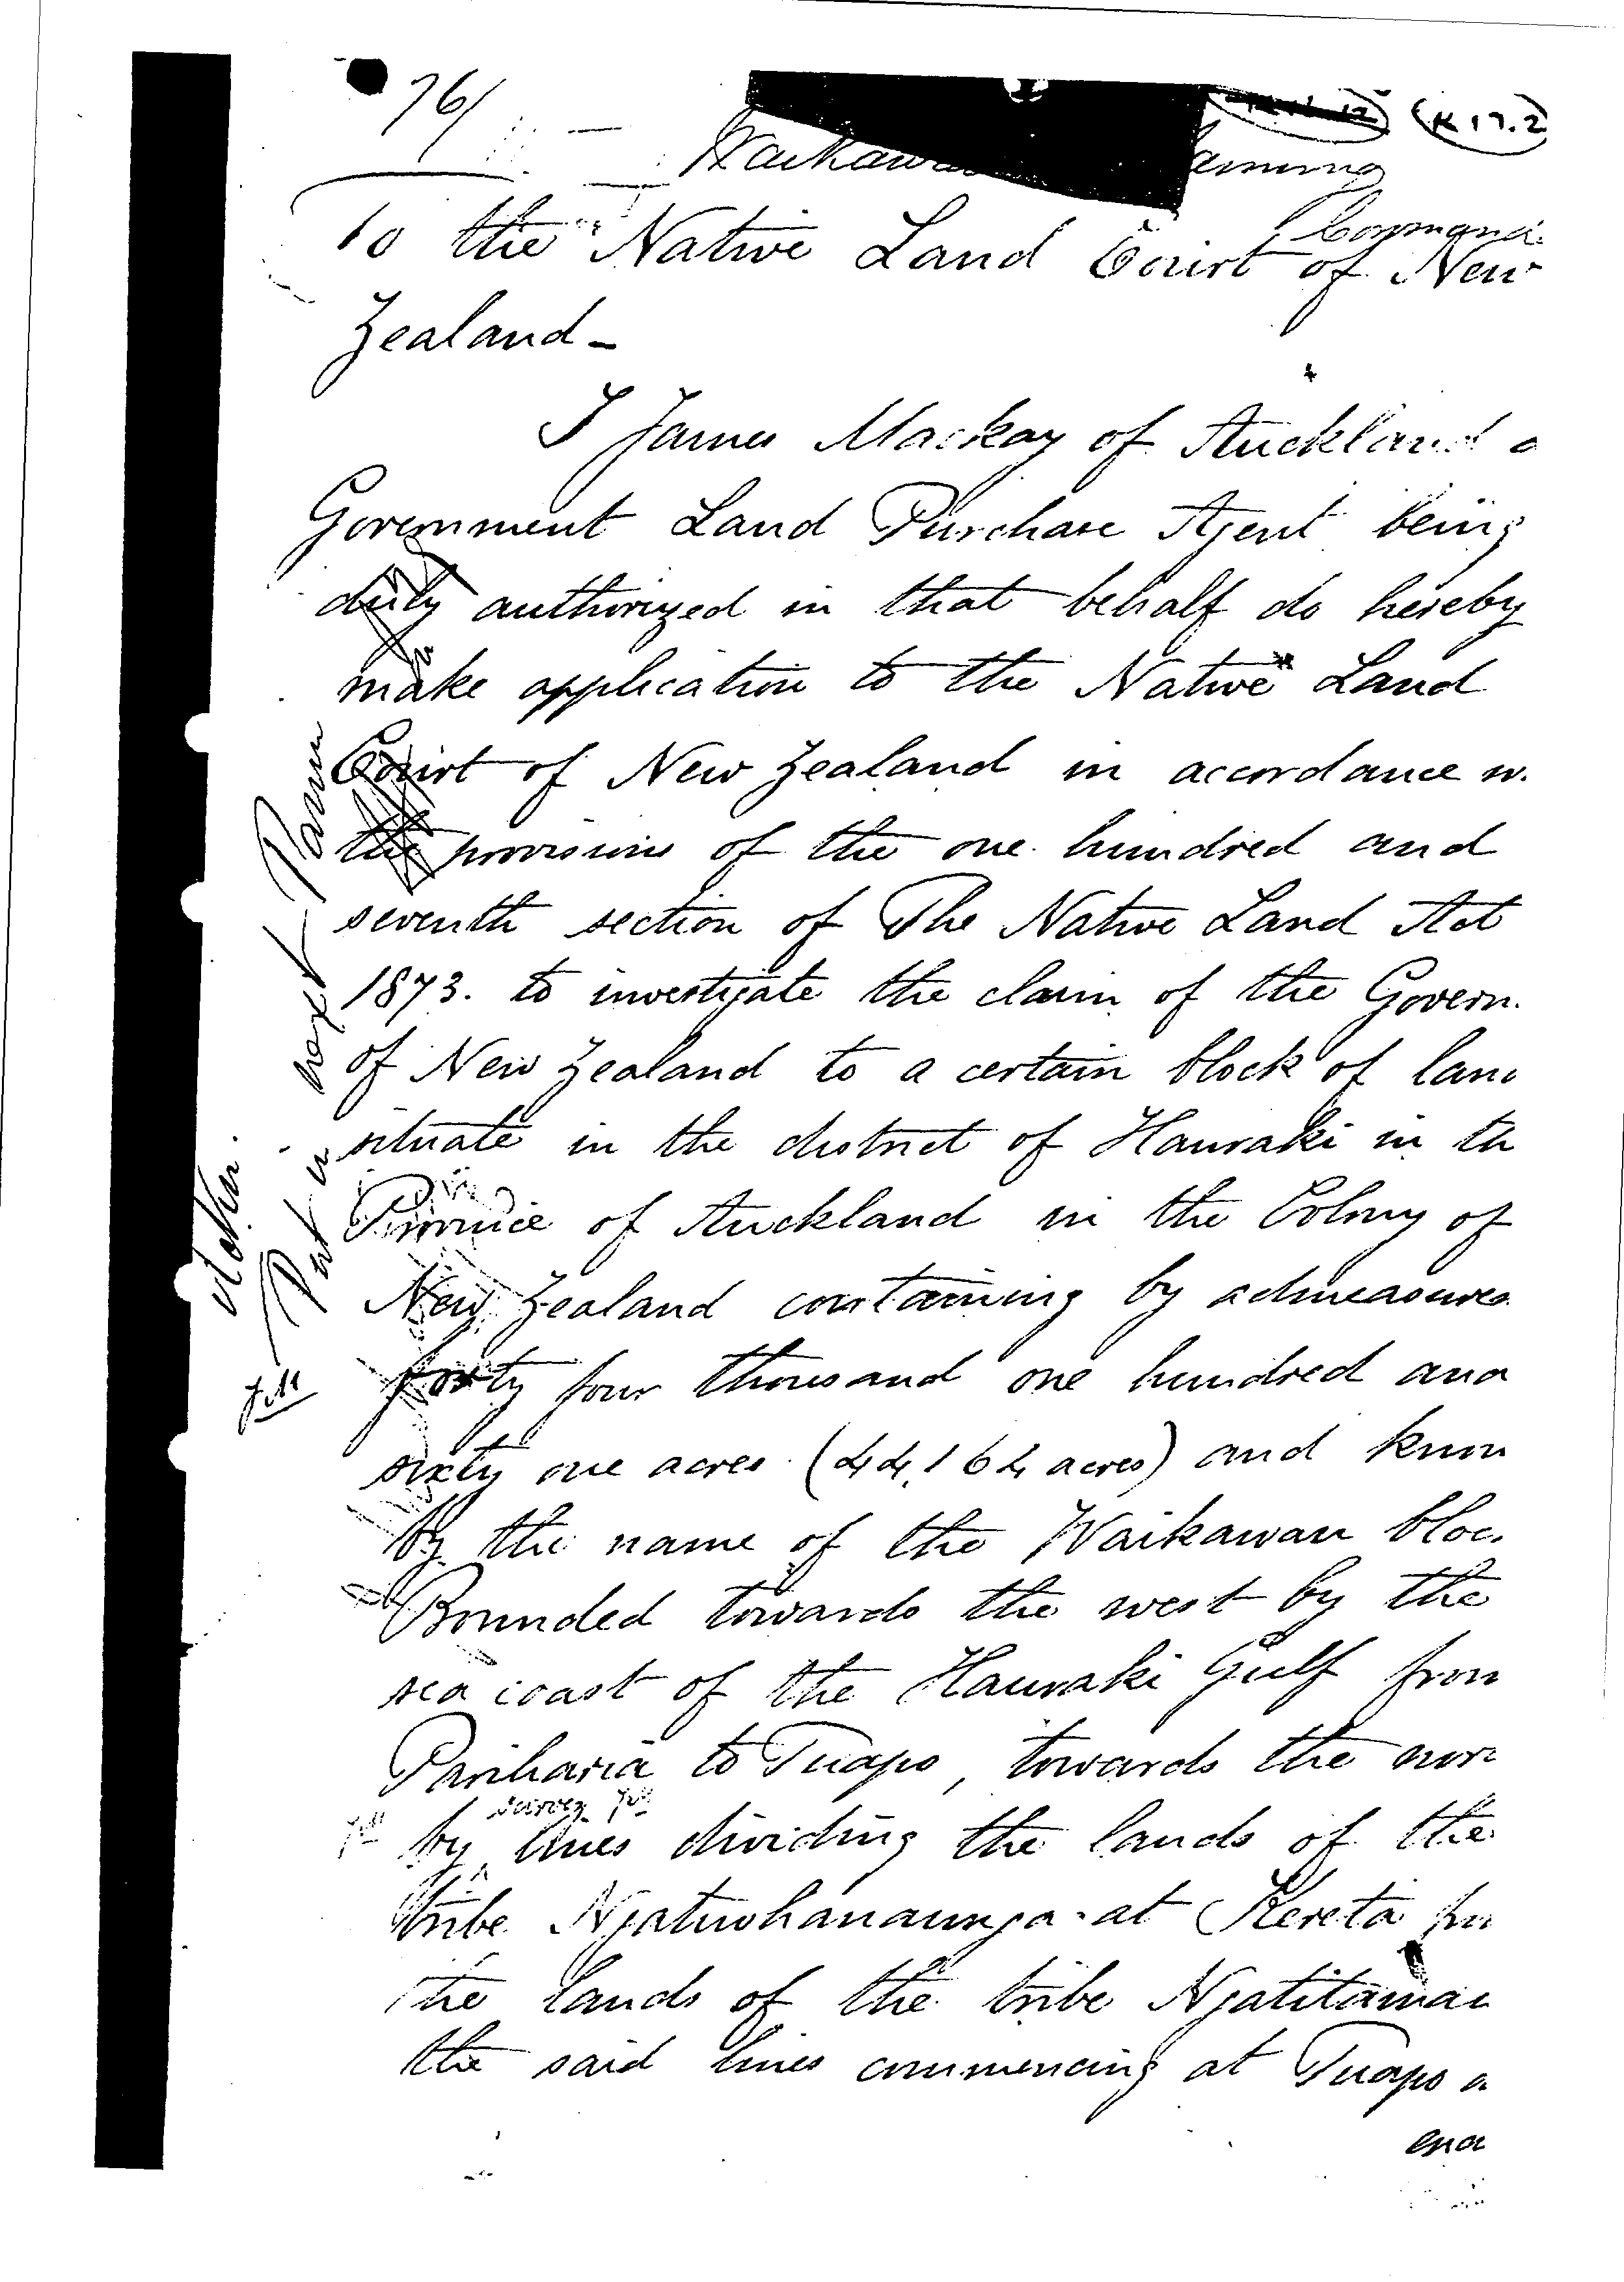 76/
(K 17.2)
Coromandel
To the Native Land Court of New
Zealand -
I James Mackay of Auckland a
Government Land Purchase Agent being
duly authorized in that behalf do hereby
make application to the Native Land
Court of New Zealand in accordance w.
the provisions of the one hundred and
seventh section of The Native Land Act
1873. to investigate the claim of the Govern.
of New Zealand to a certain block of lan
situate in the district of Hauraki in th
Province of Auckland in the Colony of
New Zealand containing by admeasure
forty four thousand one hundred and
sixty one acres (44,164 acres) and know
by the name of the Waikawau bloc
Bounded towards the west by the
sea coast of the Hauraki Gulf from
Pariharia to Tuapo, towards the nor
survey JM
JM by lines dividing the lands of the
tribe Ngatiwhanaunga at Kereta
the lands of the tribe Ngatitamai
the said lines commencing at Tuapo a
Put in next Panui
JM